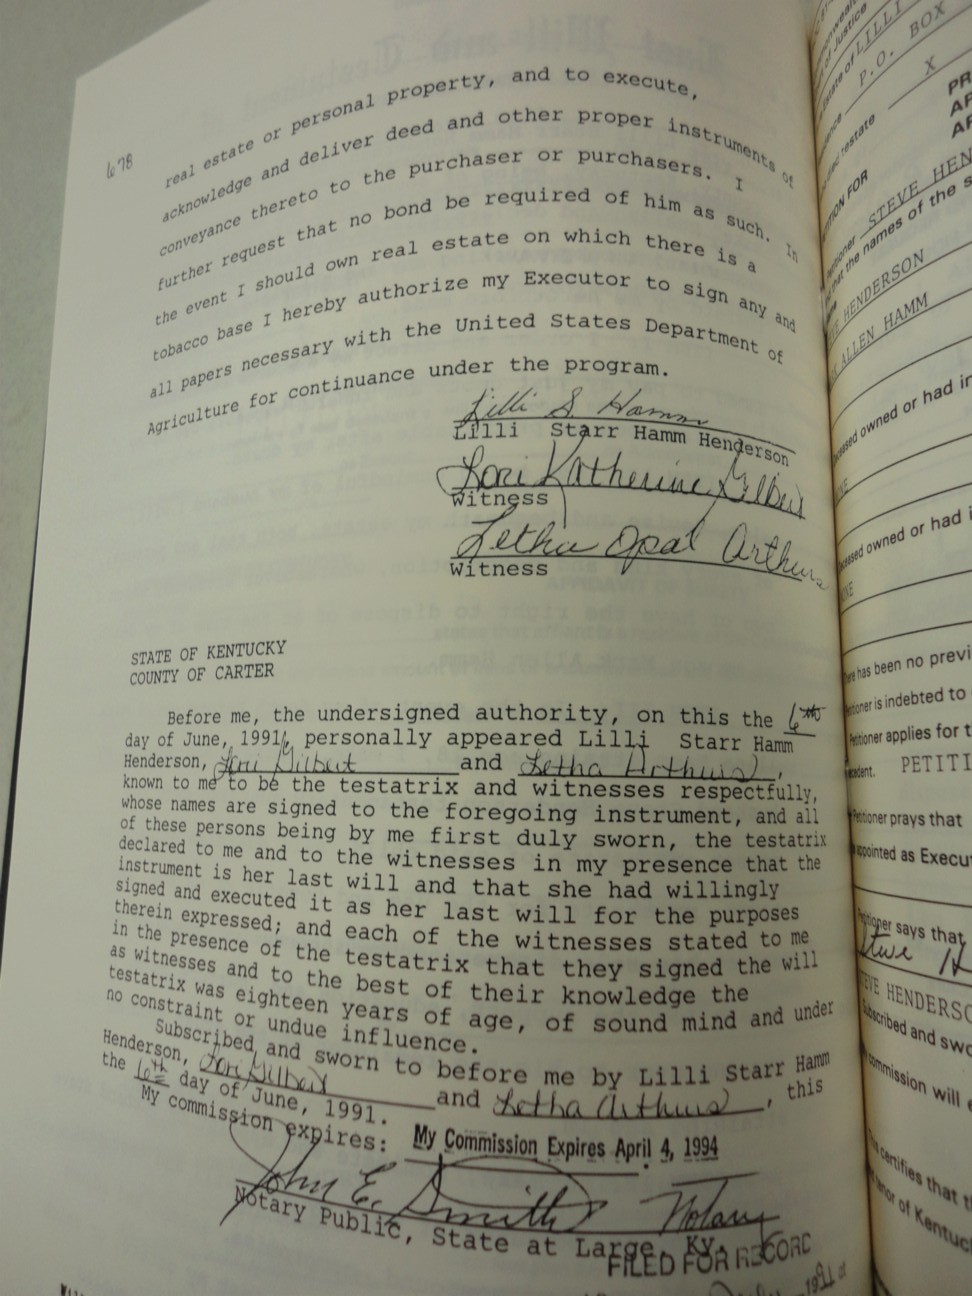 678
real estate or personal property, and to execute,
acknowledge and deliver deed and other proper instruments of
conveyance thereto to the purchaser or purchasers. I
further request that no bond be required of him as such. In
the event I should own real estate on which there is a
tobacco base I hereby authorize my Executor to sign any and
all papers necessary with the United States Department of
Agriculture for continuance under the program.
Lilli S. Hamm
Lilli Starr Hamm Henderson
Lori Katherine Gilbert
Witness
Letha Opal Arthurs
Witness
STATE OF KENTUCKY
COUNTY OF CARTER
Before me, the undersigned authority, on this the 6th
day of June, 1991, personally appeared Lilli Starr Hamm
Henderson, Lori Gilbert and Letha Arthurs,
known to me to be the testatrix and witnesses respectfully,
whose names are signed to the foregoing instrument, and all
of these persons being by me first duly sworn, the testatrix
declared to me and to the witnesses in my presence that the
instrument is her last will and that she had willingly
signed and executed it as her last will for the purposes
therein expressed; and each of the witnesses stated to me
in the presence of the testatrix that they signed the will
as witnesses and to the best of their knowledge the
testatrix was eighteen years of age, of sound mind and under
no constraint or undue influence.
Subscribed and sworn to before me by Lilli Starr Hamm
Henderson, Lori Gilbert and Letha Arthurs, this
the 6th day of June, 1991.
My commission expires: My Commission Expires April 4, 1994
John E. Smith Notary
Notary Public, State at Large, Ky.
FILED FOR RECORD
of Justice
LILLI
P.O. BOX
X
PR
AP
AP
STEVE HEN
that the names of the s
HENDERSON
ALLEN HAMM
owned or had in
owned or had i
has been no previ
Petitioner is indebted to
Petitioner applies for t
PETITI
Petitioner prays that
appointed as Execu
Petitioner says that
Steve H
STEVE HENDERSO
Subscribed and swo
commission will e
certifies that t
of Kentuc